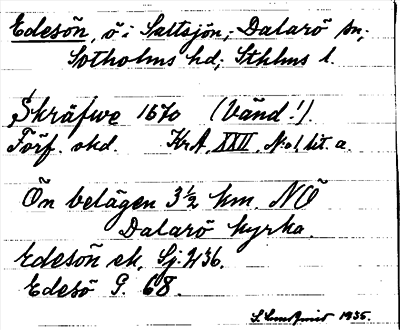 Edesön, ö i Saltsjön, Dalarö sn;
Sotholms hd; Sthlms l.
Skräfwe 1670 (Vänd!).
Förf. okd. KrA, XXII, No 1, lit. a.
Ön belägen 3½ km. NÖ
Dalarö kyrka.
Edesön ek. Sj. 236.
Edesö G. 68.
S. Lundqvist 1935.